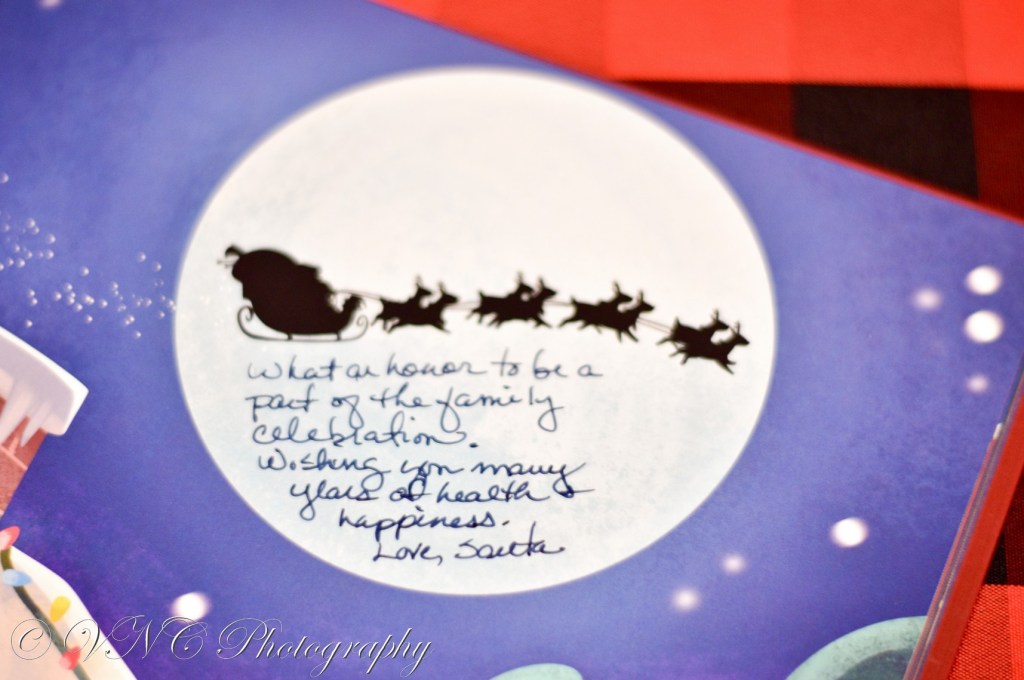 What an honor to be a
part of the family
celebration.
Wishing you many
years of health &
happiness.
Love, Santa
© VNC Photography